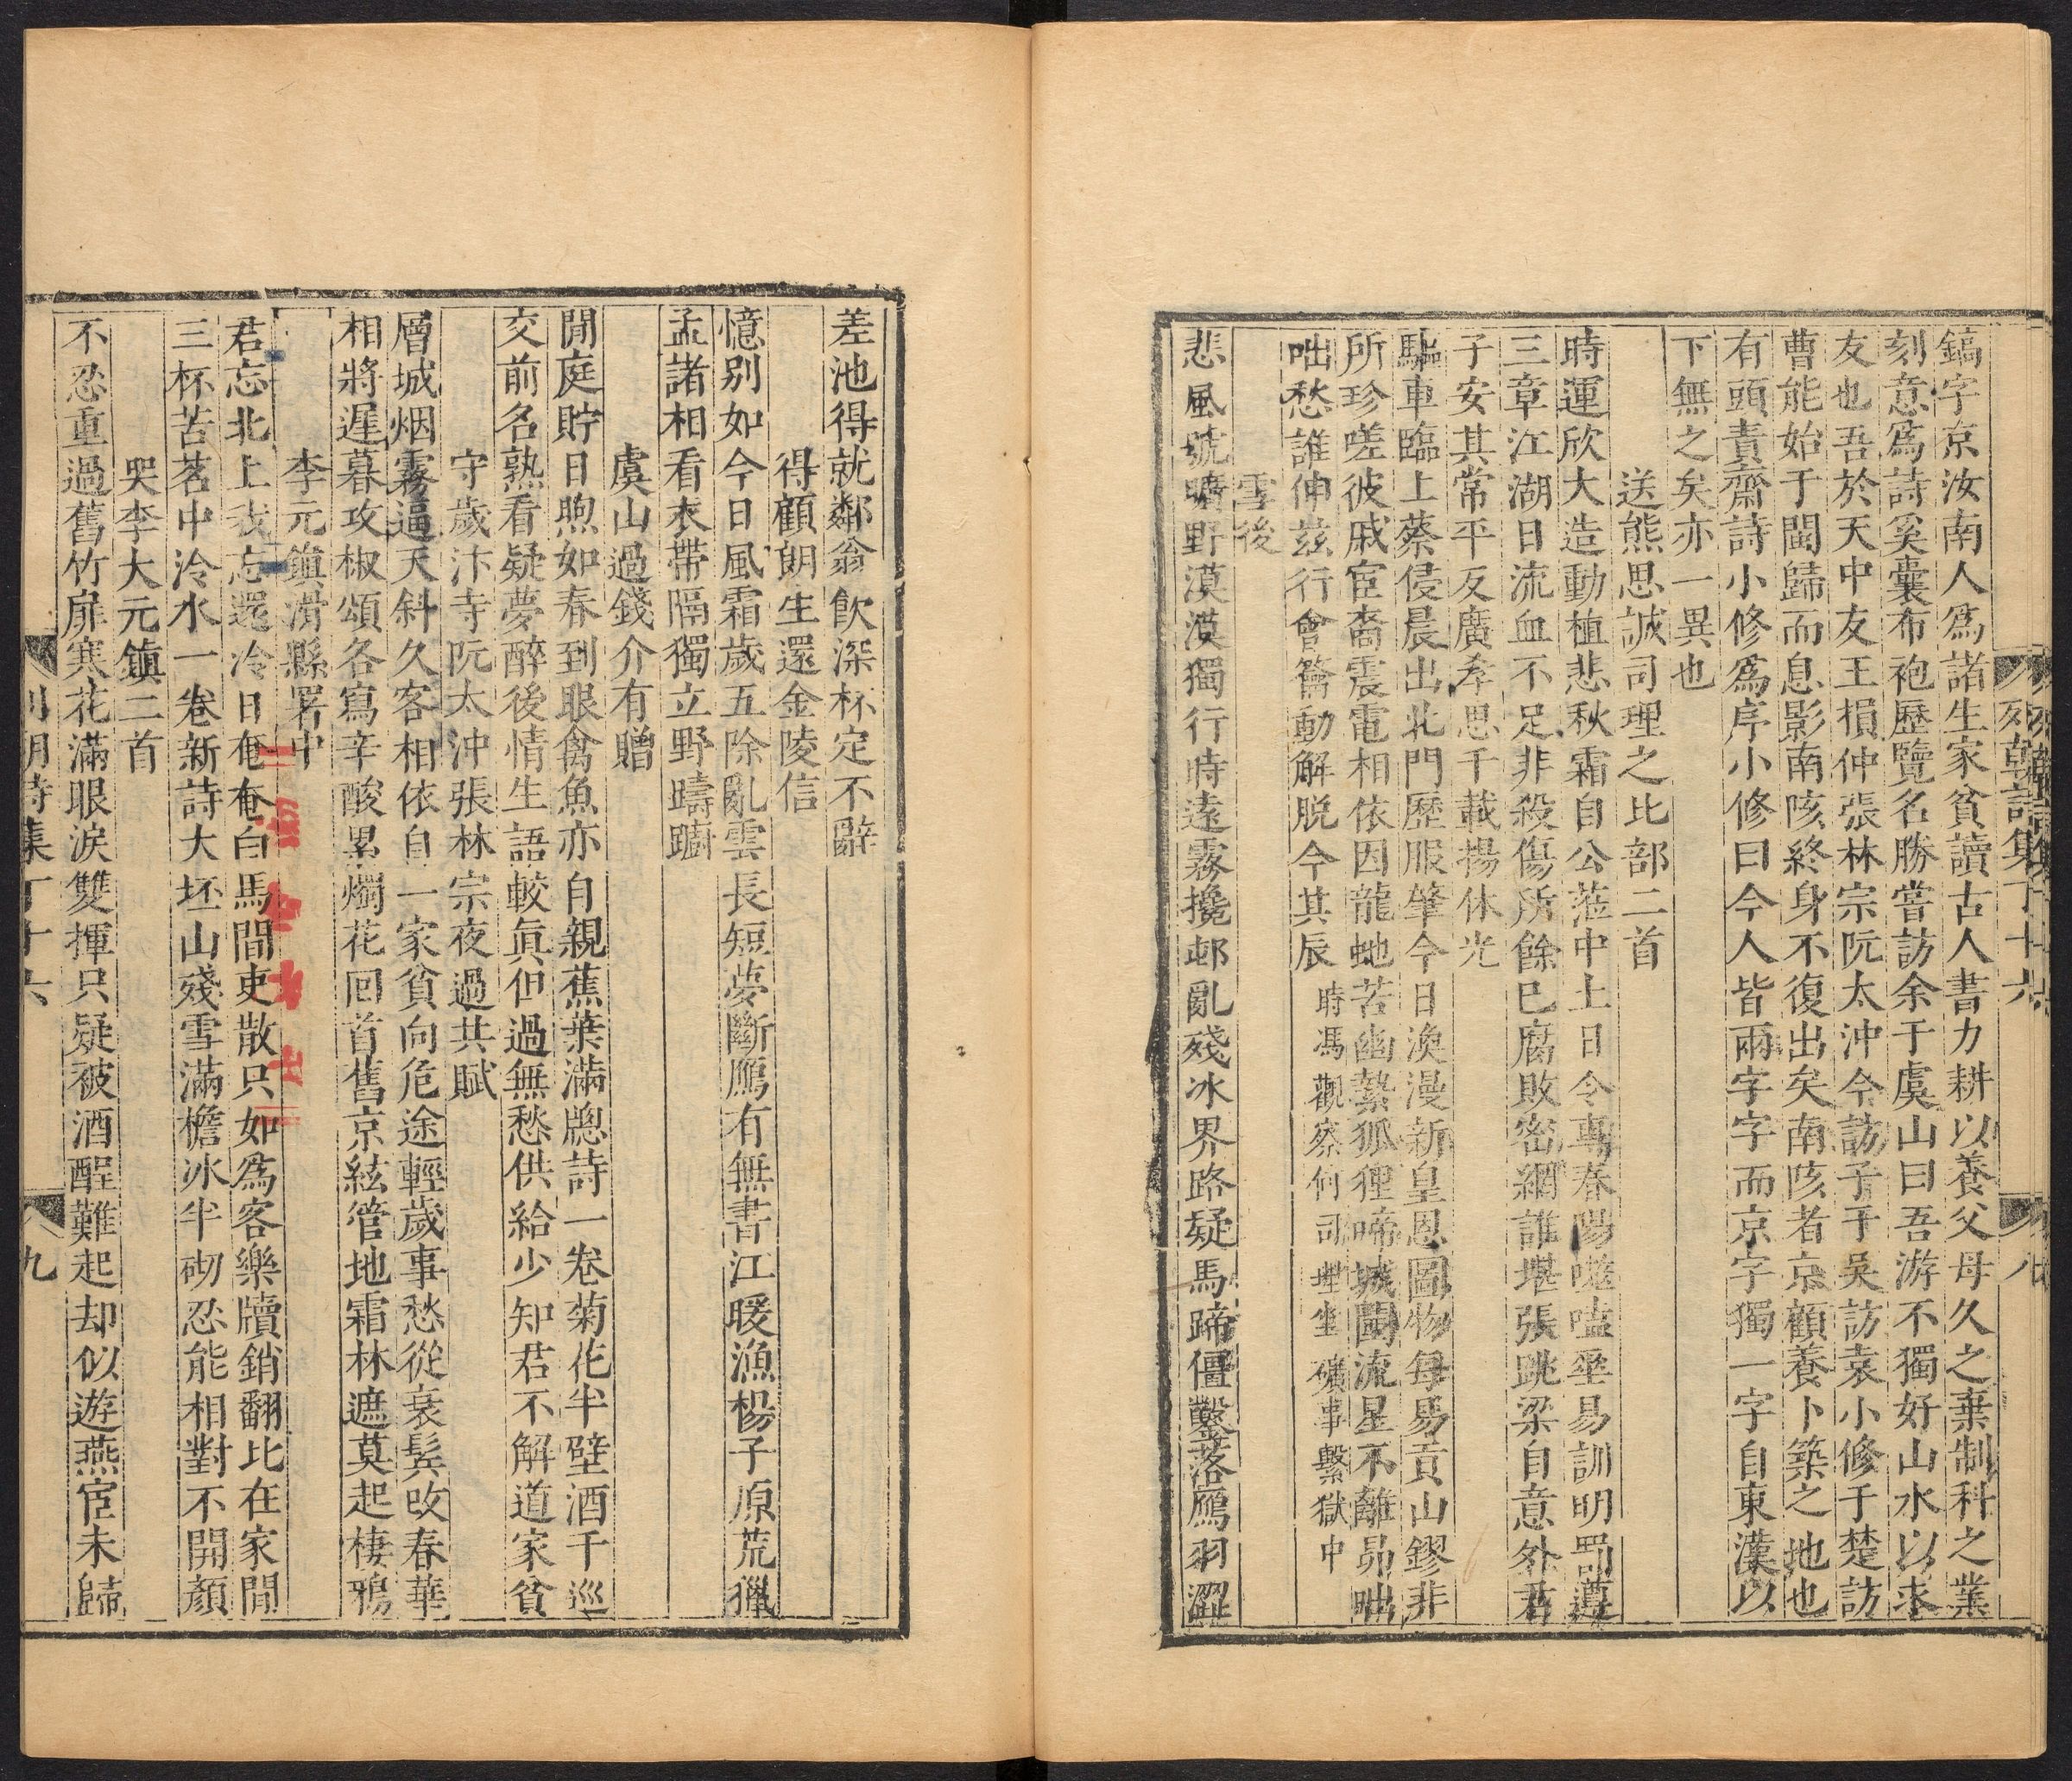 列朝詩集丁十六 八
鎬字京汝南人爲諸生家貧讀古人書力耕以養父母久之棄制科之業
刻意爲詩奚囊布袍歷覽名勝嘗訪余于虞山曰吾游不獨好山水以求
友也吾於天中友王損仲張林宗阮太沖今訪子于吳訪袁小修于楚訪
曹能始于閩歸而息影南陔終身不復出矣南陔者京顧養卜築之地也
有頭責齋詩小修爲序小修曰今人皆兩字字而京字獨一字自東漢以
下無之矣亦一異也
送熊思誠司理之比部二首
時運欣大造動植悲秋霜自公蒞中土日令專春陽噬嗑垩易訓明罰遵
三章江湖日流血不足非殺傷所餘已腐敗密網誰堪張跳梁自意外君
子安其常平反廣孝思千載揚休光
驅車臨上蔡侵晨出北門歷服肇今日渙漫新皇恩圖物每易貢山鏐非
所珍嗟彼戚宦裔震電相依因龍虵苦幽縶狐狸啼城闉流星不離昴咄
咄愁誰伸茲行會簪動解脱今其辰 時馮觀察何司理坐礦事繫獄中
雪後
悲風號曠野漠漠獨行時遠霧攙邨亂殘冰界路疑馬蹄僵鑿落鴈羽澀
差池得就鄰翁飲深杯定不辭
得顧朗生還金陵信
憶别如今日風霜歲五除亂雲長短夢斷鴈有無書江暖漁楊子原荒獵
孟諸相看衣帶隔獨立野躊躕
虞山過錢介有贈
閒庭貯日煦如春到眼禽魚亦自親蕉葉滿牕詩一卷菊花半壁酒千巡
交前名熟看疑夢醉後情生語較眞但過無愁供給少知君不解道家貧
守歲汴寺阮太沖張林宗夜過共賦
層城烟霧逼天斜久客相依自一家貧向危途輕歲事愁從衰鬂改春華
相將遲暮攻椒頌各寫辛酸累燭花回首舊京絃管地霜林遮莫起棲鴉
李元鎮滑縣署中
君忘北上我忘還冷日奄奄白馬間吏散只如爲客樂牘銷翻比在家閒
三杯苦茗中泠水一卷新詩大坯山殘雪滿檐冰半砌忍能相對不開顏
哭李大元鎮二首
不忍重過舊竹扉寒花滿眼淚雙揮只疑被酒酲難起却似遊燕宦未歸
列朝詩集丁十六 九